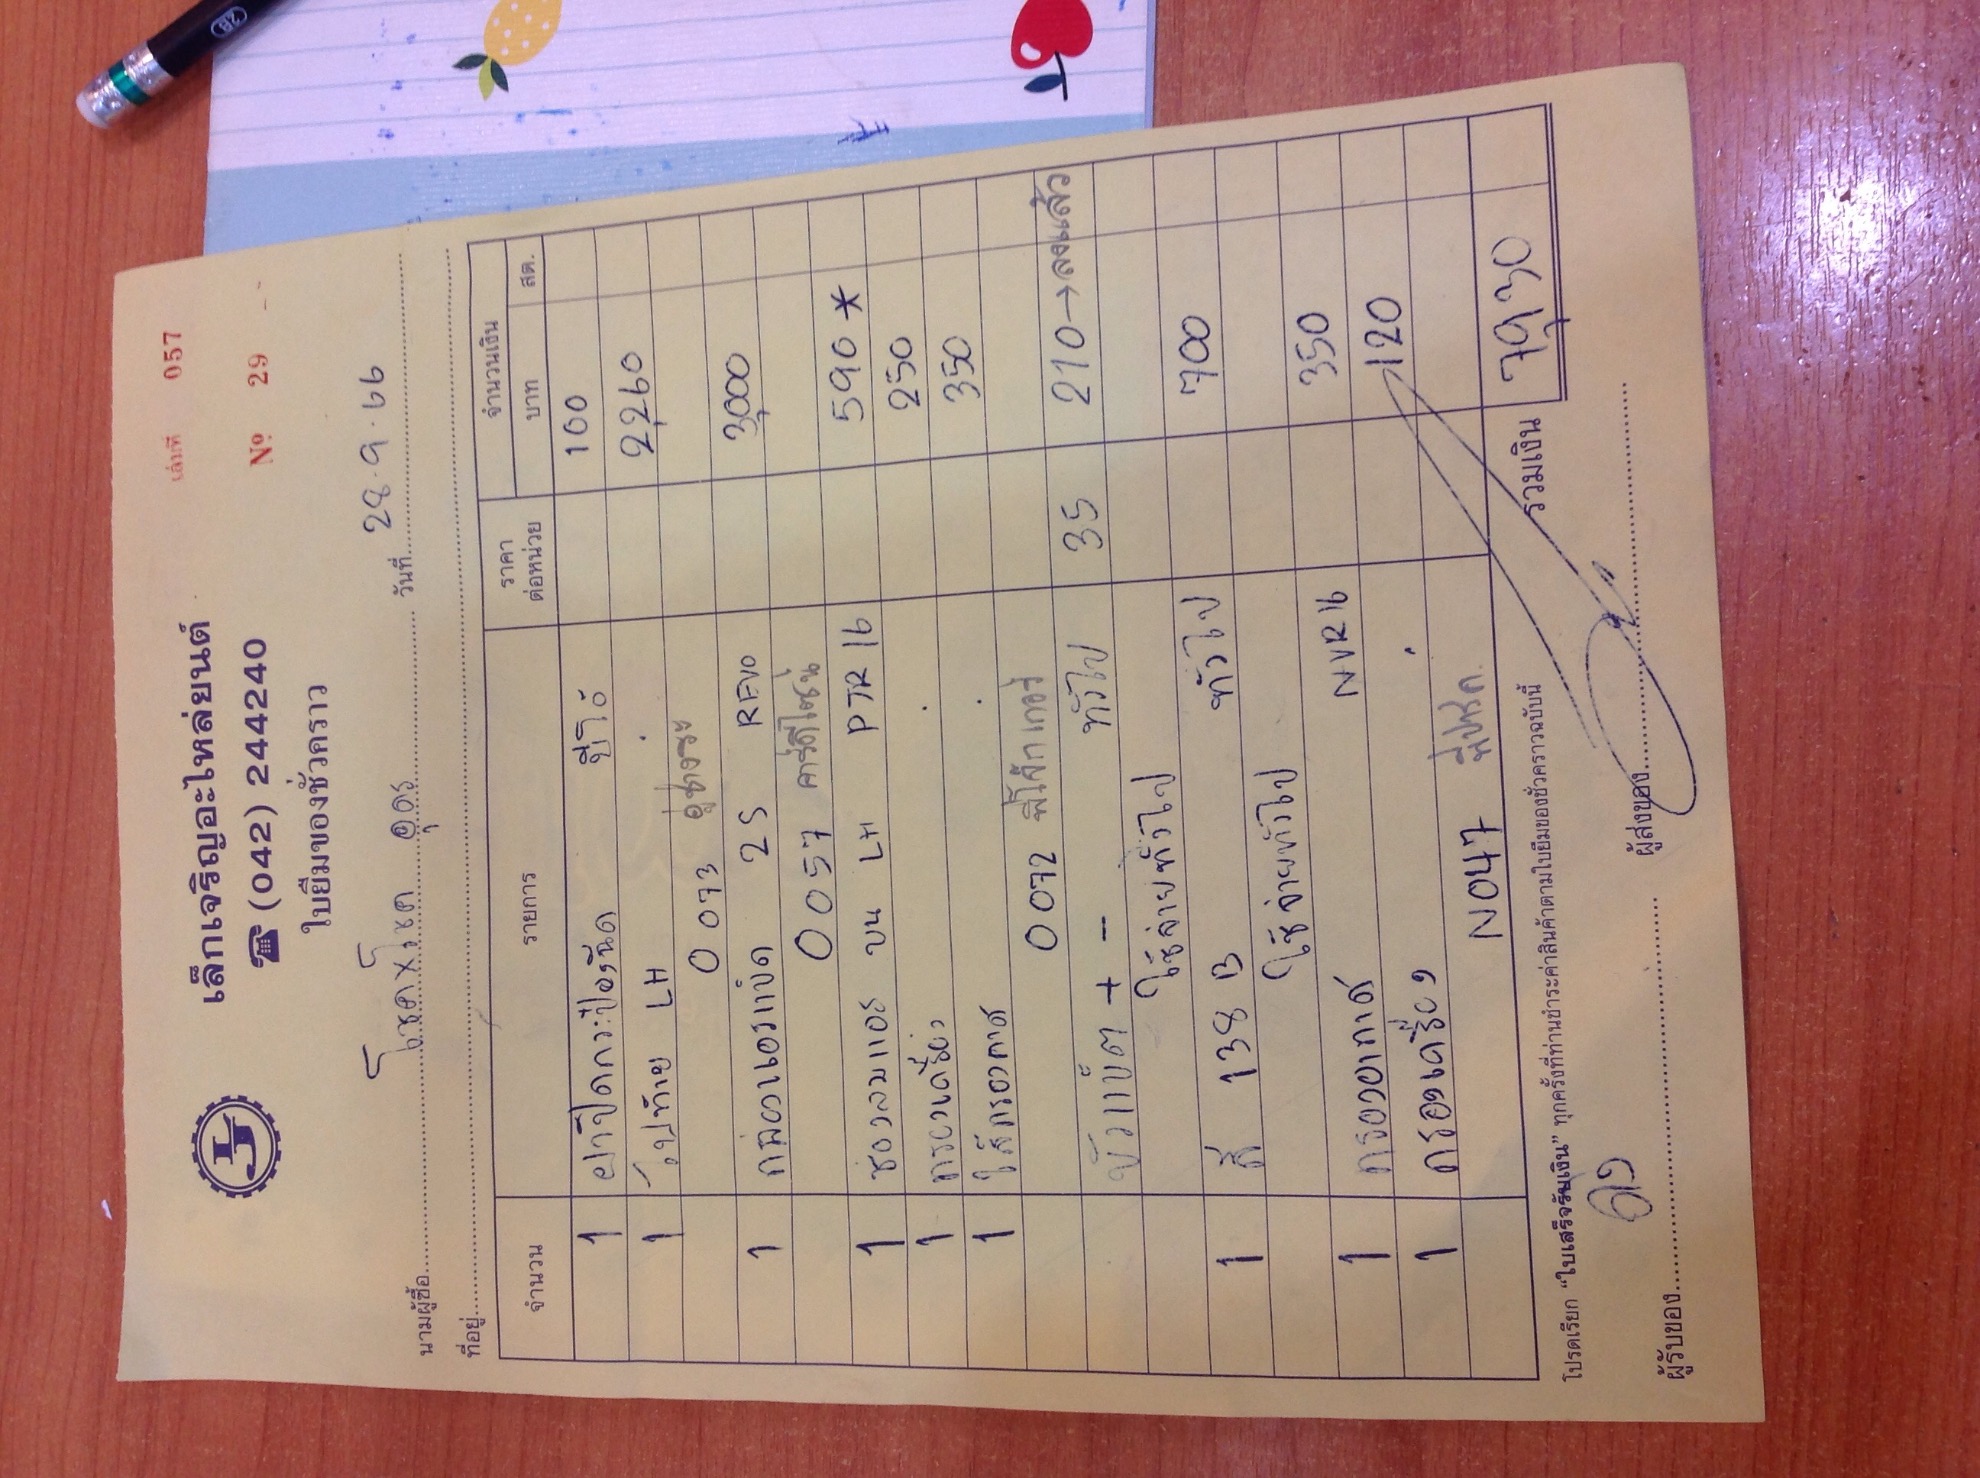 เล่มที่ 057
เล็กเจริญอะไหล่ยนต์
☎ (042) 244240
№ 29
ใบยืมของชั่วคราว
นามผู้ซื้อ โชค x โชค อุดร วันที่ 28.9.66
ที่อยู่
จำนวน รายการ ราคาต่อหน่วย จำนวนเงิน
บาท สต.
1 ยาปัดกระป๋อง 100
1 ไฟท้าย LH 2,260
0073
1 2S REVO 3,000
0057
1 ช่องลมแอร์ บน LH PTR 16 590 *
1 กรองเครื่อง 250
1 ไส้กรองอากาศ 350
0072
ขั้วแบ็ต + - ทั่วไป 35 210 → ลงแล้ว
ใช้จ่ายทั่วไป
1 สี 138 B ทั่วไป 700
ใช้จ่ายทั่วไป
1 กรองอากาศ NVR 16 350
1 กรองเครื่อง 120
N047
รวมเงิน 7930
โปรดเรียก "ใบเสร็จรับเงิน" ทุกครั้งที่ท่านชำระค่าสินค้าตามใบยืมของชั่วคราวฉบับนี้
ผู้รับของ ผู้ส่งของ
2B